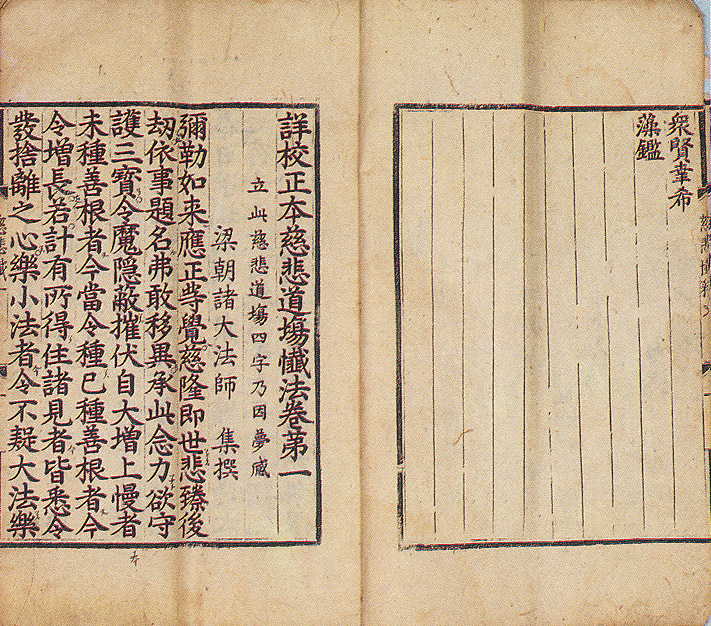 衆賢幸希
藻鑑
詳校正本慈悲道場懺法卷第一
立此慈悲道場四字乃因夢感
梁朝諸大法師 集撰
彌勒如来應正等覺慈隆即世悲臻後
劫依事題名弗敢移異承此念力欲守
護三寶令魔隱蔽摧伏自大增上慢者
未種善根者今當令種已種善根者今
令增長若計有所得住諸見者皆悉令
發捨離之心樂小法者令不疑大法樂